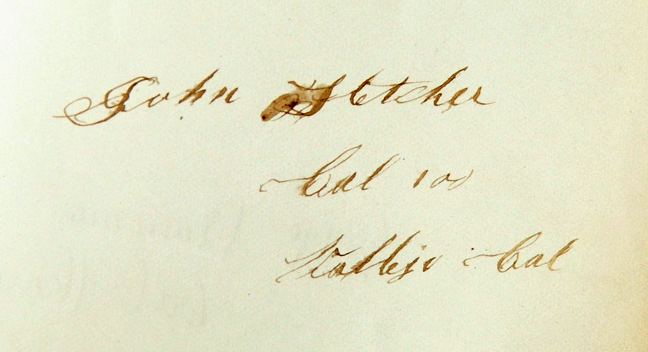 John Fletcher
Cal 100
Vallejo Cal